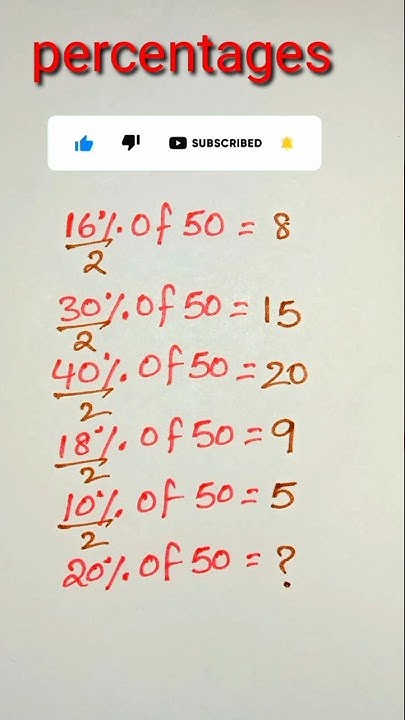 percentages
SUBSCRIBED
16% of 50 = 8
2
30% of 50 = 15
2
40% of 50 = 20
2
18% of 50 = 9
2
10% of 50 = 5
2
20% of 50 = ?